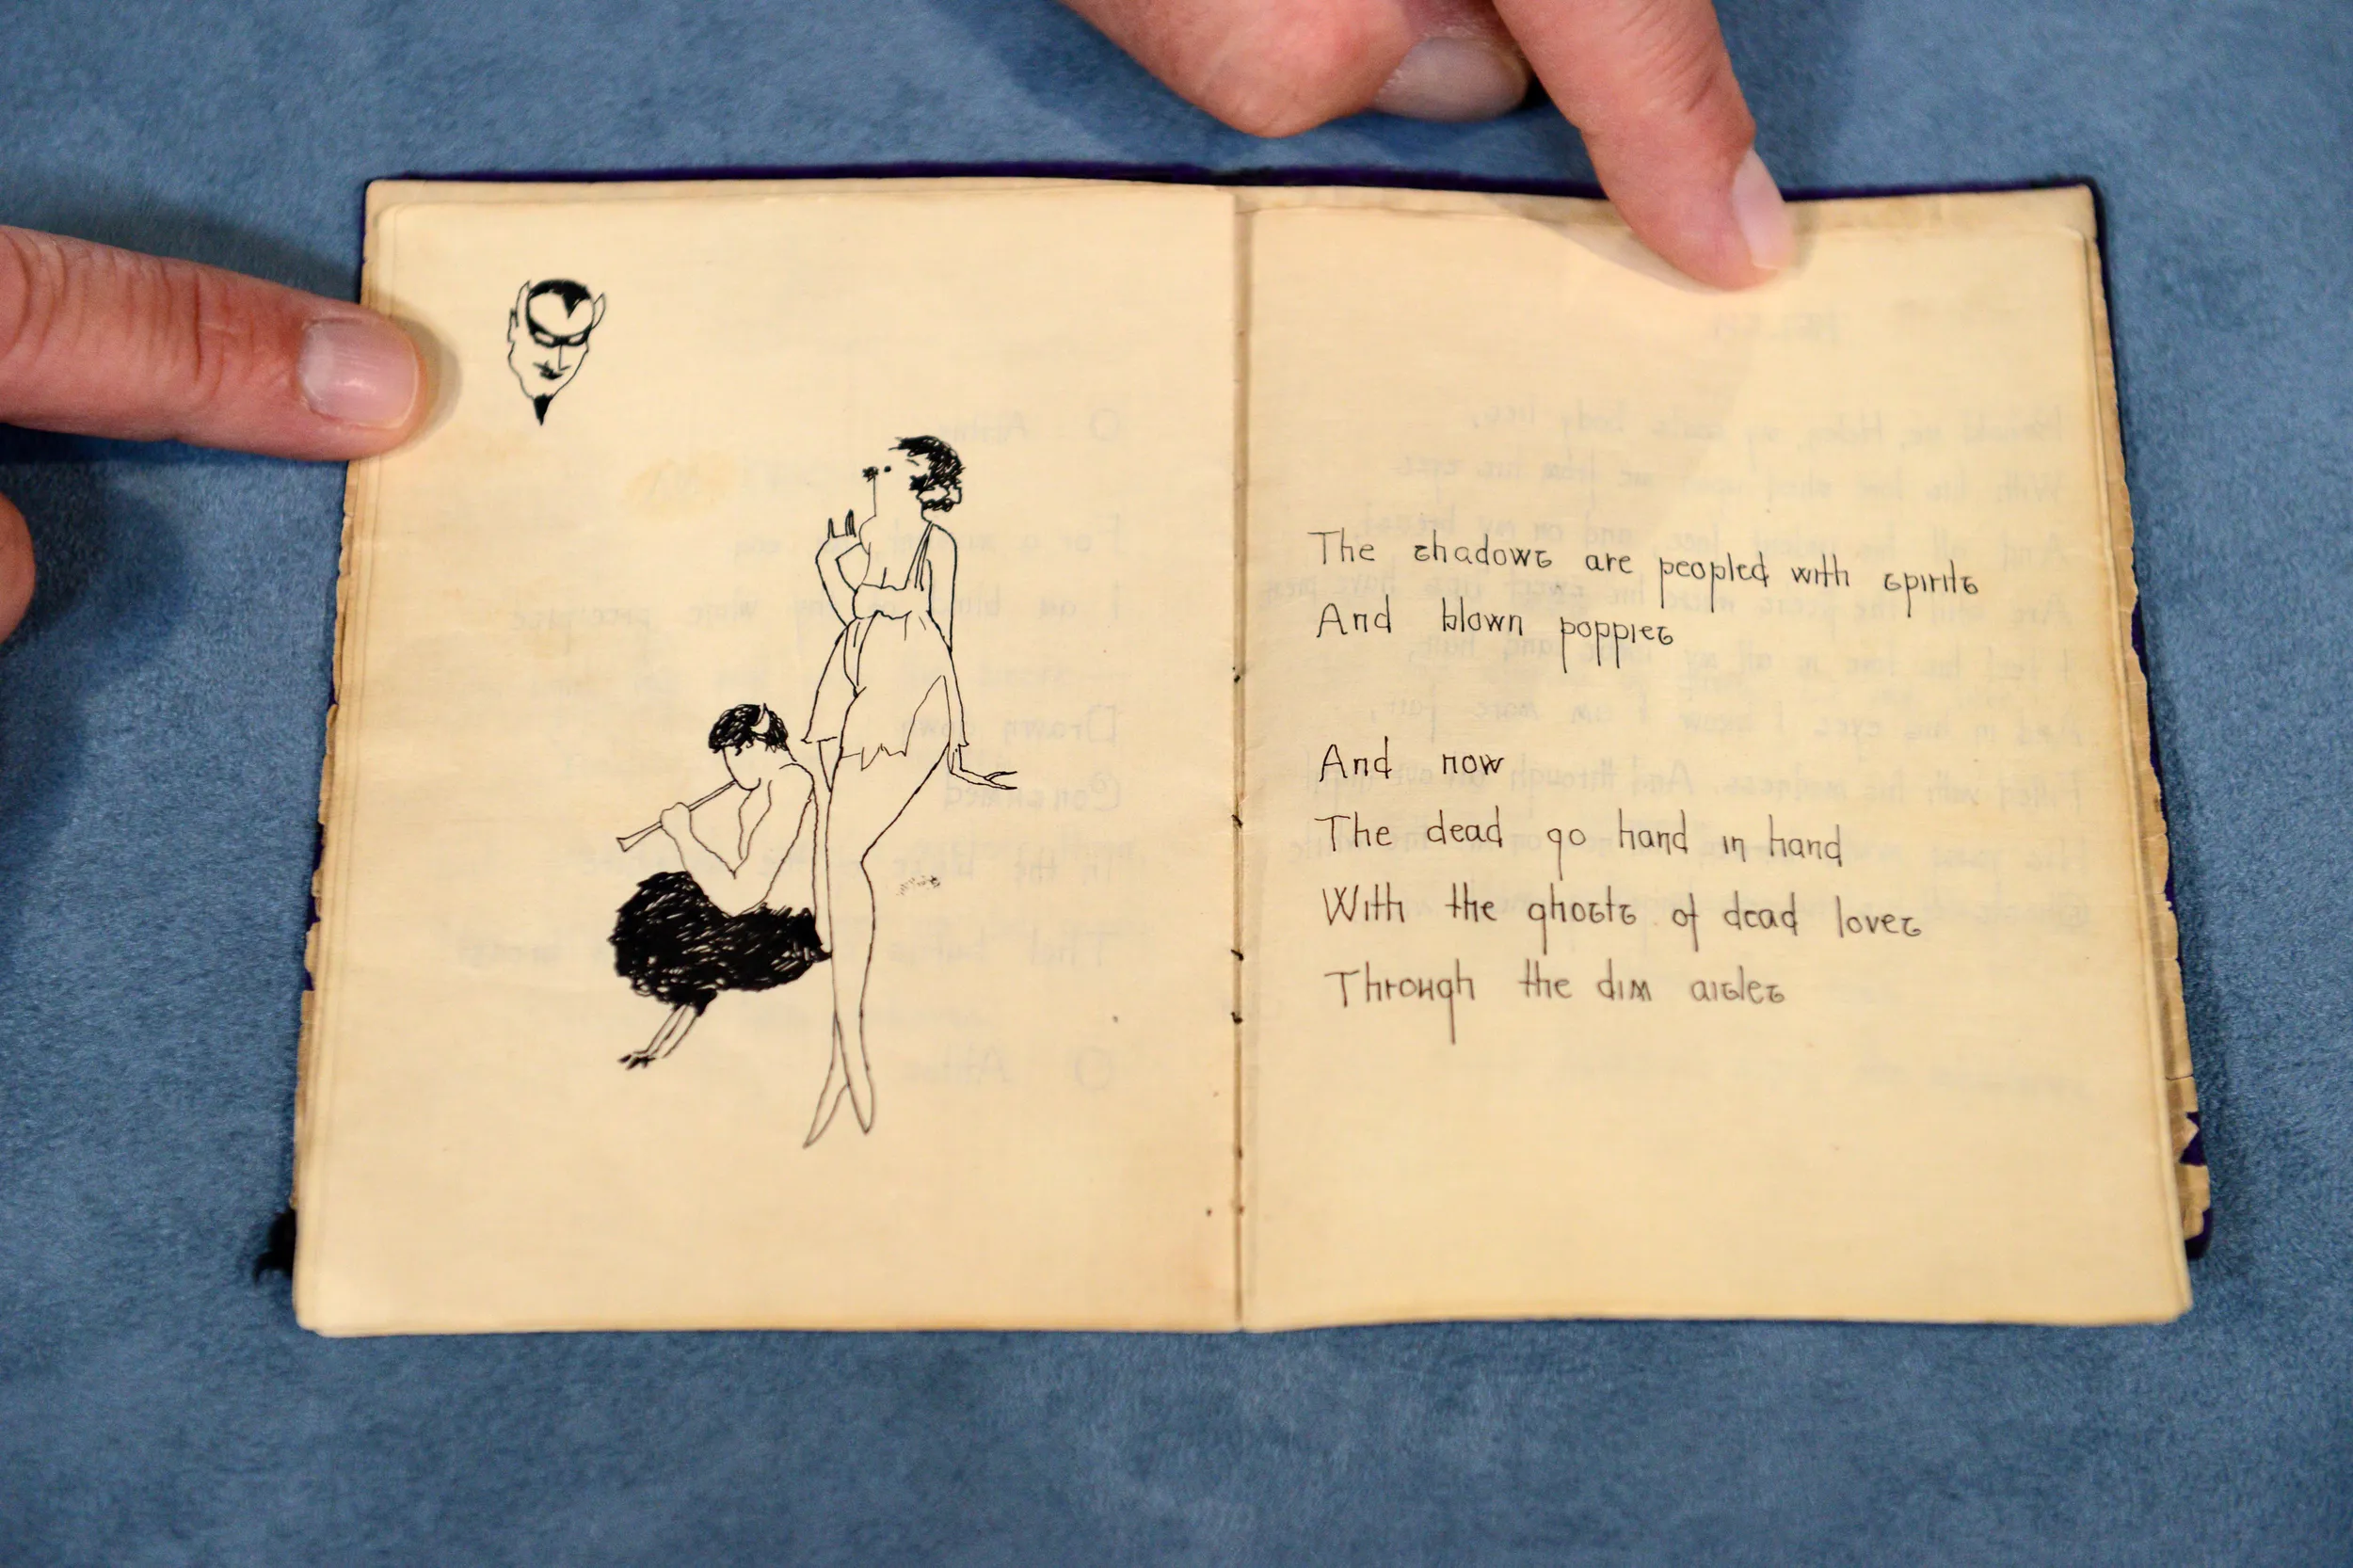 The shadows are peopled with spirits
And blown poppies
And now
The dead go hand in hand
With the ghosts of dead loves
Through the dim aisles